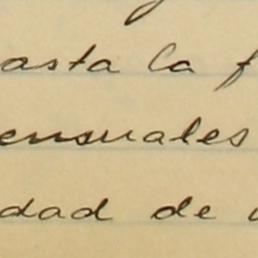 asta la f
ensuales
dad de